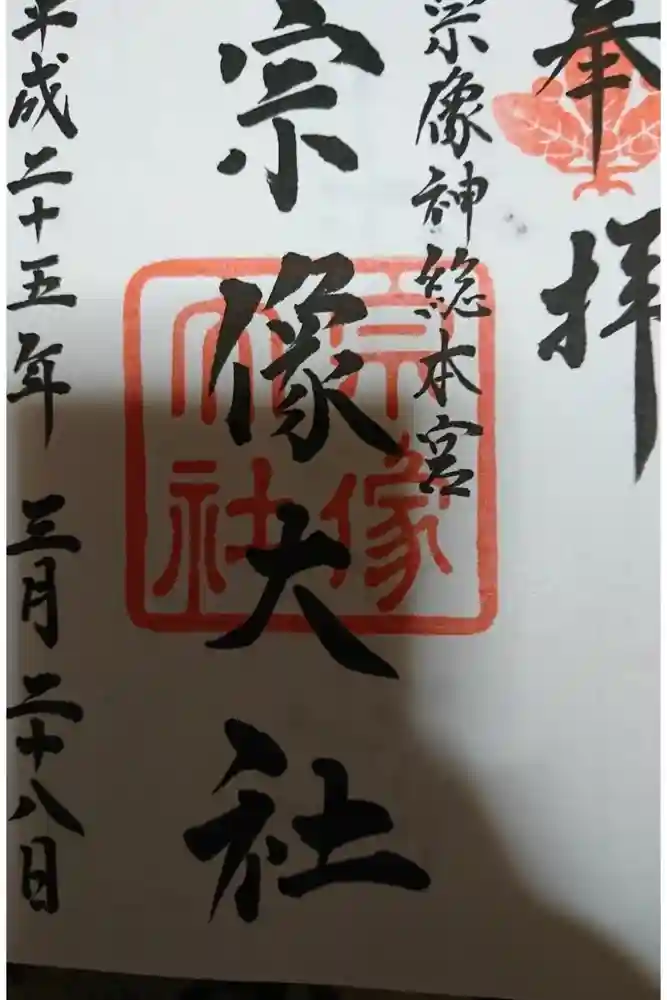 奉拝
宗像神総本宮
宗像大社
宗像大社
平成二十五年 三月二十八日